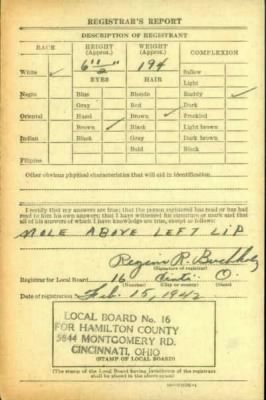 REGISTRAR'S REPORT
DESCRIPTION OF REGISTRANT
RACE HEIGHT (Approx.) WEIGHT (Approx.) COMPLEXION
White ✓ 6'½" 194 Sallow
EYES HAIR Light
Negro Blue Blonde Ruddy ✓
Gray Red Dark
Oriental Hazel Brown ✓ Freckled
Brown ✓ Black Light brown
Indian Black Gray Dark brown
Bald Black
Filipino
Other obvious physical characteristics that will aid in identification
I certify that my answers are true; that the person registered has read or has had
read to him his own answers; that I have witnessed his signature or mark and that
all of his answers of which I have knowledge are true, except as follows:
MOLE ABOVE LEFT LIP
R. Buchholz
(Signature of registrar)
Registrar for Local Board 16 Cinti O.
(Number) (City or county) (State)
Date of registration Feb. 15, 1942
LOCAL BOARD No. 16
FOR HAMILTON COUNTY
5844 MONTGOMERY RD.
CINCINNATI, OHIO
(STAMP OF LOCAL BOARD)
(The stamp of the Local Board having jurisdiction of the registrant
shall be placed in the above space)